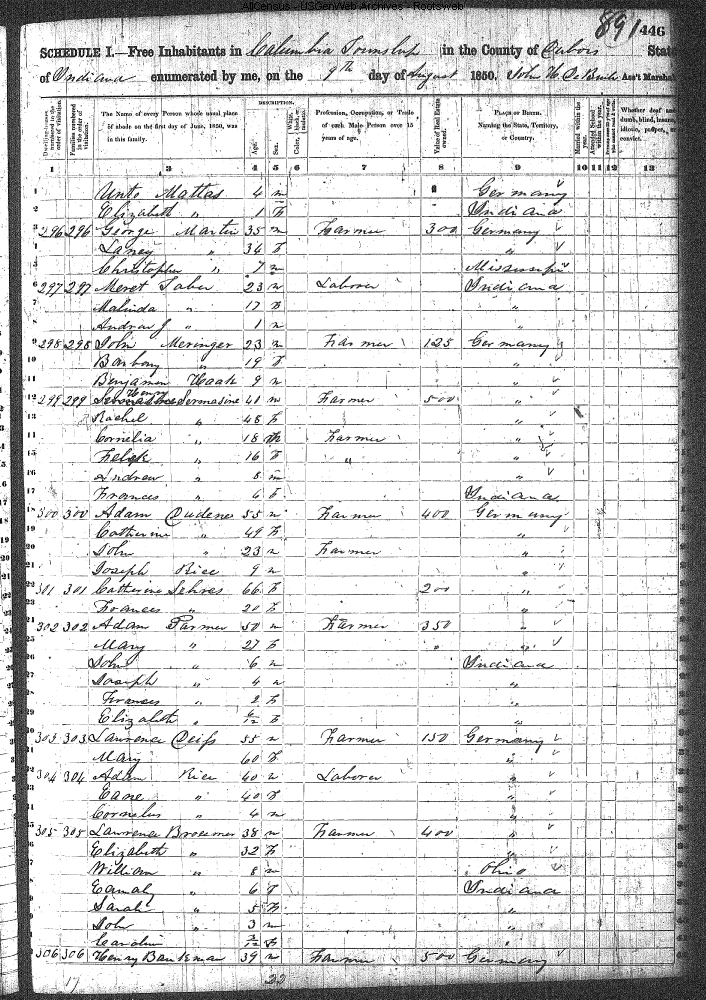 AllCensus - USGenWeb Archives - Rootsweb
891 446
SCHEDULE I.—Free Inhabitants in Columbia Township in the County of Dubois State
of Indiana enumerated by me, on the 9th day of August 1850. Ass't Marshal
Dwelling-houses numbered in the order of visitation.
Families numbered in the order of visitation.
The Name of every Person whose usual place of abode on the first day of June, 1850, was in this family.
DESCRIPTION.
Age.
Sex.
White, black, or mulatto. Color
Profession, Occupation, or Trade of each Male Person over 15 years of age.
Value of Real Estate owned.
PLACE OF BIRTH. Naming the State, Territory, or Country.
Married within the year.
Attended School within the year.
Whether deaf and dumb, blind, insane, idiotic, pauper, or convict.
1 2 3 4 5 6 7 8 9 10 11 12 13
Mattas 4 m Germany
Elizabeth " 1 f Indiana
296 296 George Martin 35 m Farmer 300 Germany
Laney " 34 f "
Christopher " 7 m Mississippi
297 297 Meret Taber 23 m Laborer Indiana
Malinda " 17 f "
Andrew J " 1 m "
298 298 John Meringer 23 m Farmer 125 Germany
Barbary " 19 f "
Benjamin Haak 9 m "
299 299 Henry Sermasine 41 m Farmer 500 "
Rachel " 48 f "
Cornelia " 18 Farmer "
16 " "
Andrew " 8 m "
Frances " 6 f Indiana
300 300 Adam Cudene 55 m Farmer 400 Germany
Catherine " 49 f "
John " 23 m Farmer "
Joseph Rice 9 m "
301 301 Catherine Sehres 66 f 200 "
Frances " 20 f "
302 302 Adam Parmer 50 m Farmer 350 "
Mary " 27 f "
John " 6 m Indiana
Joseph " 4 m "
Frances " 2 f "
Elizabeth " f "
303 303 Lawrence Deifs 55 m Farmer 150 Germany
Mary 60 f "
304 304 Adam Rice 40 m Laborer "
Eane " 40 f "
Cornelius " 4 m "
305 305 Lawrence Brosmer 38 m Farmer 400 "
Elizabeth " 32 f "
William " 8 m Ohio
" 6 f Indiana
Sarah " 5 f "
John " 3 m "
Carolin f "
306 306 Henry Bankman 39 m Farmer 500 Germany
17 22